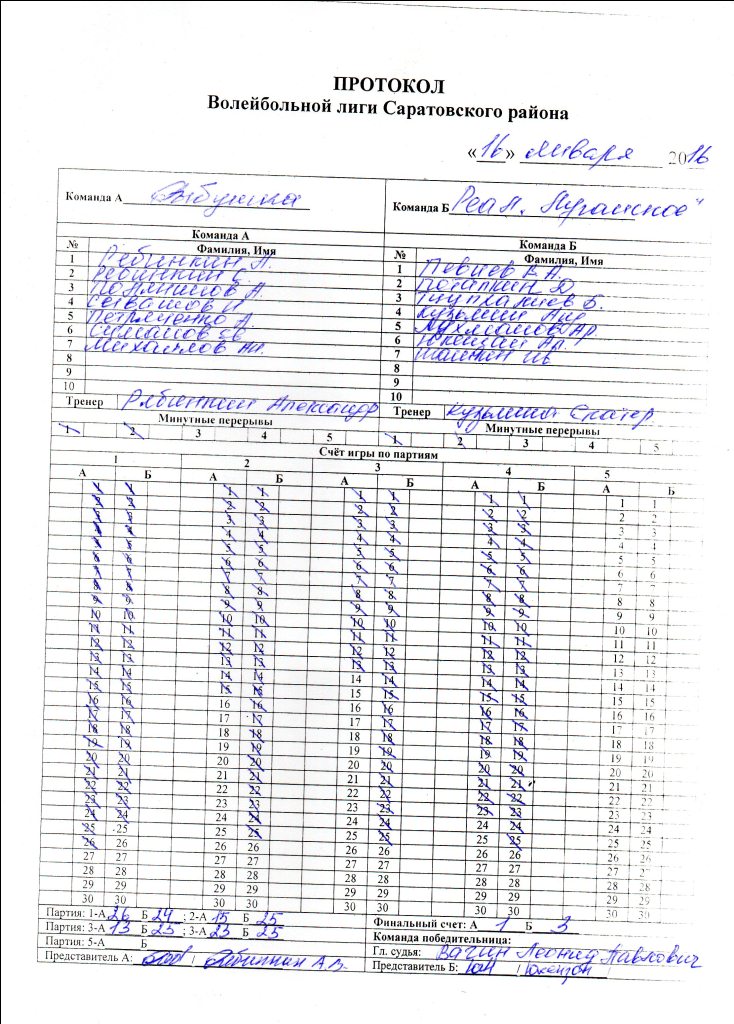 ПРОТОКОЛ
Волейбольной лиги Саратовского района
«16» января 2016
Команда А
Команда Б Реал
Команда А Команда Б
№ Фамилия, Имя № Фамилия, Имя
1 Рябинкин А. 1
2 Рябинкин С. 2 Потапкин Д
3 А. 3 Б.
4 И 4 Кузьмин Анд
5 А. 5 Ар.
6 6 Ар.
7 Михайлов 7
8 8
9 9
10 10
Тренер Рябинкин Александр Тренер Кузьмин
Минутные перерывы Минутные перерывы
1 2 3 4 5 1 2 3 4 5
Счёт игры по партиям
1 2 3 4 5
А Б А Б А Б А Б А Б
1 1 1 1 1 1 1 1 1 1
2 2 2 2 2 2 2 2 2 2
3 3 3 3 3 3 3 3 3 3
4 4 4 4 4 4 4 4 4 4
5 5 5 5 5 5 5 5 5 5
6 6 6 6 6 6 6 6 6 6
7 7 7 7 7 7 7 7 7 7
8 8 8 8 8 8 8 8 8 8
9 9 9 9 9 9 9 9 9 9
10 10 10 10 10 10 10 10 10 10
11 11 11 11 11 11 11 11 11 11
12 12 12 12 12 12 12 12 12 12
13 13 13 13 13 13 13 13 13 13
14 14 14 14 14 14 14 14 14 14
15 15 15 15 15 15 15 15 15 15
16 16 16 16 16 16 16 16 16 16
17 17 17 17 17 17 17 17 17 17
18 18 18 18 18 18 18 18 18 18
19 19 19 19 19 19 19 19 19 19
20 20 20 20 20 20 20 20 20 20
21 21 21 21 21 21 21 21 21 21
22 22 22 22 22 22 22 22 22 22
23 23 23 23 23 23 23 23 23 23
24 24 24 24 24 24 24 24 24 24
25 25 25 25 25 25 25 25 25 25
26 26 26 26 26 26 26 26 26 26
27 27 27 27 27 27 27 27 27 27
28 28 28 28 28 28 28 28 28 28
29 29 29 29 29 29 29 29 29 29
30 30 30 30 30 30 30 30 30 30
Партия: 1-А 26 Б 24 ; 2-А 15 Б 25 Финальный счет: А 1 Б 3
Партия: 3-А 13 Б 25 ; 3-А 23 Б 25 Команда победительница:
Партия: 5-А Б Гл. судья: Вагин Леонид Павлович
Представитель А: Рябинкин А.В. Представитель Б: